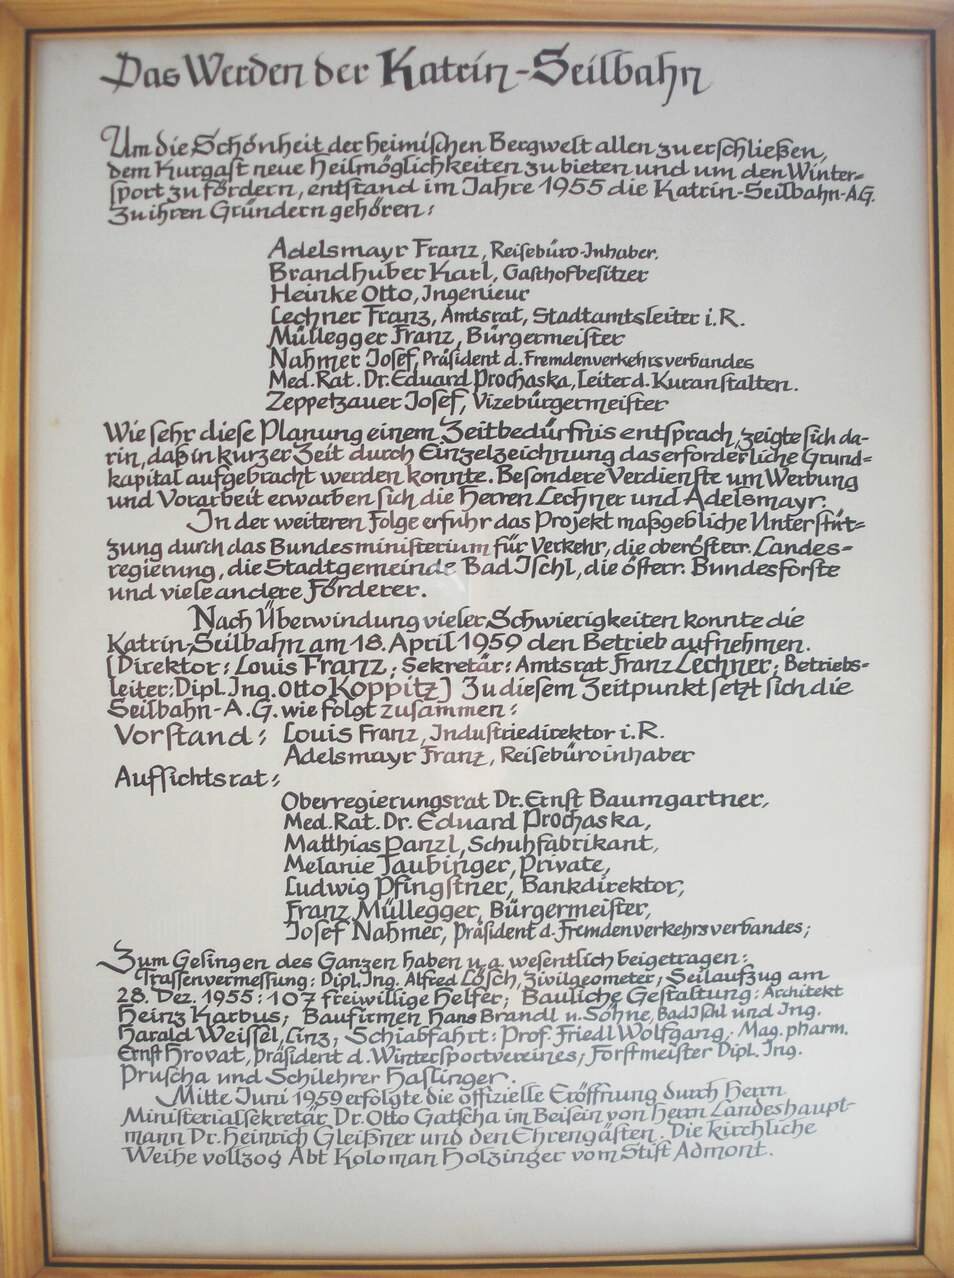 Das Werden der Katrin-Seilbahn
Um die Schönheit der heimischen Bergwelt allen zu erschließen,
dem Kurgast neue Heilmöglichkeiten zu bieten und um den Winter-
sport zu fördern, entstand im Jahre 1955 die Katrin-Seilbahn-A.G.
Zu ihren Gründern gehören:
Adelsmayr Franz, Reisebüro-Inhaber.
Brandhuber Karl, Gasthofbesitzer
Heinke Otto, Ingenieur
Lechner Franz, Amtsrat, Stadtamtsleiter i. R.
Müllegger Franz, Bürgermeister
Nahmer Josef, Präsident d. Fremdenverkehrsverbandes
Med. Rat. Dr. Eduard Prochaska, Leiter d. Kuranstalten.
Zeppetzauer Josef, Vizebürgermeister
Wie sehr diese Planung einem Zeitbedürfnis entsprach, zeigte sich da-
rin, daß in kurzer Zeit durch Einzelzeichnung das erforderliche Grund-
kapital aufgebracht werden konnte. Besondere Verdienste um Werbung
und Vorarbeit erwarben sich die Herren Lechner und Adelsmayr.
In der weiteren Folge erfuhr das Projekt maßgebliche Unterstüt-
zung durch das Bundesministerium für Verkehr, die oberösterr. Landes-
regierung, die Stadtgemeinde Bad Ischl, die österr. Bundesforste
und viele andere Förderer.
Nach Überwindung vieler Schwierigkeiten konnte die
Katrin-Seilbahn am 18. April 1959 den Betrieb aufnehmen.
(Direktor: Louis Franz; Sekretär: Amtsrat Franz Lechner; Betriebs-
leiter: Dipl. Ing. Otto Koppitz) Zu diesem Zeitpunkt setzt sich die
Seilbahn-A.G. wie folgt zusammen:
Vorstand: Louis Franz, Industriedirektor i. R.
Adelsmayr Franz, Reisebüroinhaber
Aufsichtsrat:
Oberregierungsrat Dr. Ernst Baumgartner,
Med. Rat. Dr. Eduard Prochaska,
Matthias Panzl, Schuhfabrikant,
Melanie Taubinger, Private,
Ludwig Pfingstner, Bankdirektor,
Franz Müllegger, Bürgermeister,
Josef Nahmer, Präsident d. Fremdenverkehrsverbandes;
Zum Gelingen des Ganzen haben u. a. wesentlich beigetragen:
Trassenvermessung: Dipl. Ing. Alfred Lösch, Zivilgeometer; Seilaufzug am
28. Dez. 1955: 107 freiwillige Helfer; Bauliche Gestaltung: Architekt
Heinz Karbus; Baufirmen Hans Brandl u. Söhne, Bad Ischl und Ing.
Harald Weissel, Linz; Schiabfahrt: Prof. Friedl Wolfgang, Mag. pharm.
Ernst Hrovat, Präsident d. Wintersportvereines; Forstmeister Dipl. Ing.
Pruscha und Schilehrer Haslinger.
Mitte Juni 1959 erfolgte die offizielle Eröffnung durch Herrn
Ministerialsekretär Dr. Otto Gatscha im Beisein von Herrn Landeshaupt-
mann Dr. Heinrich Gleißner und den Ehrengästen. Die kirchliche
Weihe vollzog Abt Koloman Holzinger vom Stift Admont.